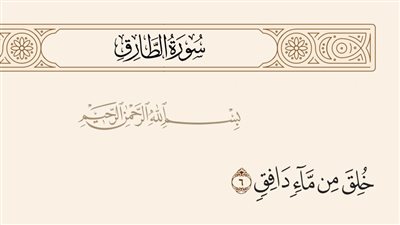 سُورَةُ الطَّارِقِ
بِسْمِ اللَّهِ الرَّحْمَٰنِ الرَّحِيمِ
خُلِقَ مِن مَّآءٖ دَافِقٖ ٦